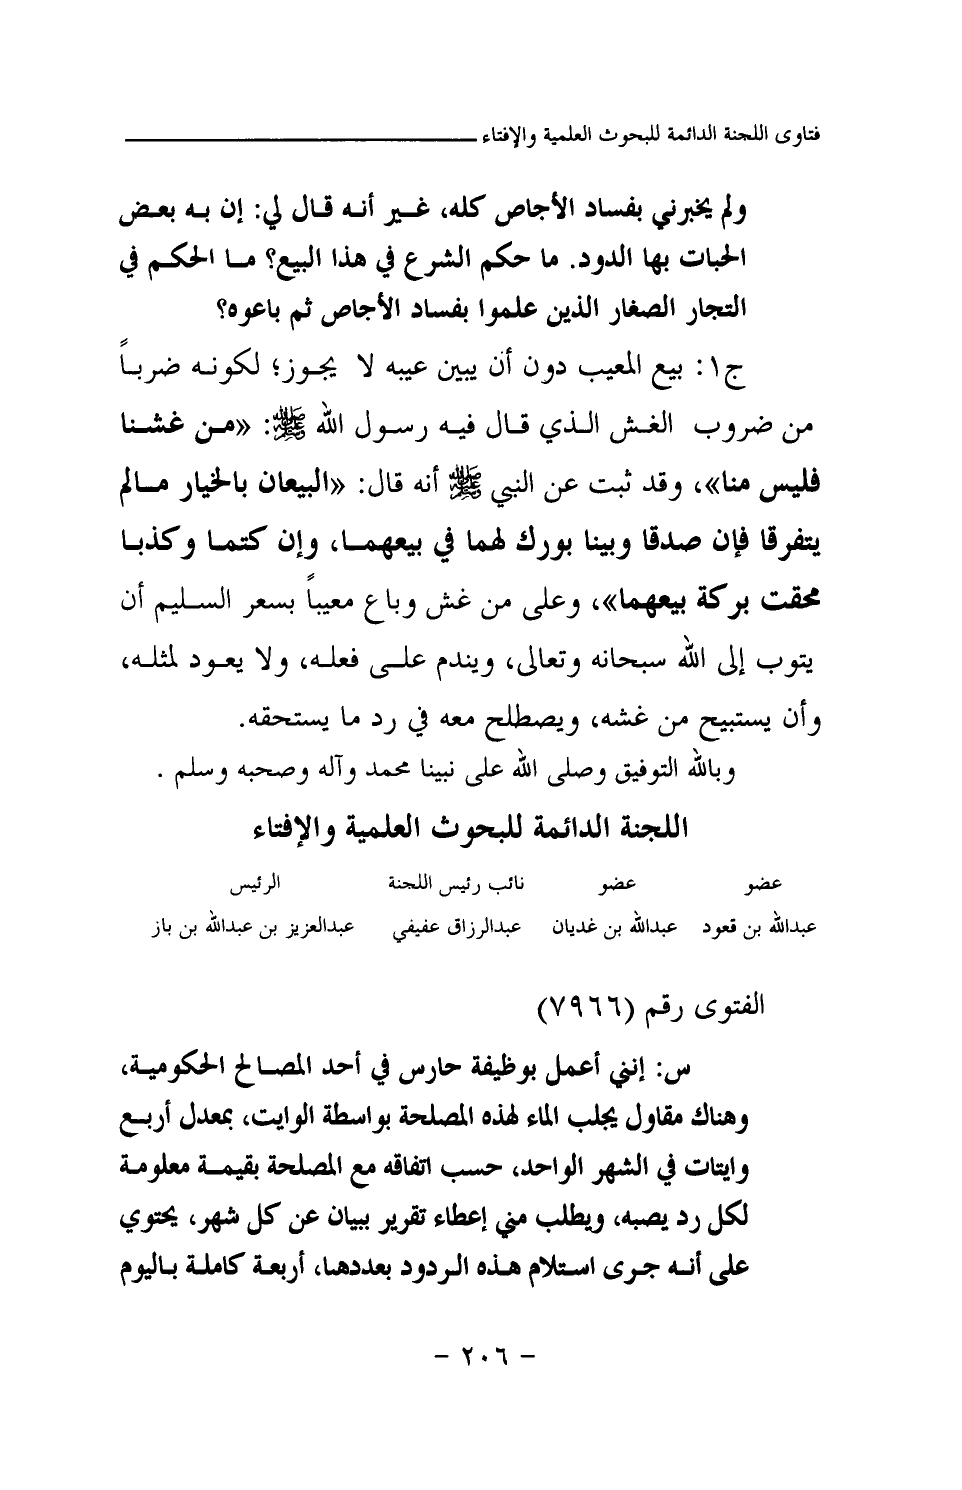 فتاوى اللجنة الدائمة للبحوث العلمية والإفتاء
ولم يخبرني بفساد الأجاص كله، غير أنه قال لي: إن به بعض
الحبات بها الدود. ما حكم الشرع في هذا البيع؟ ما الحكم في
التجار الصغار الذين علموا بفساد الأجاص ثم باعوه؟
ج١: بيع المعيب دون أن يبين عيبه لا يجوز؛ لكونه ضرباً
من ضروب الغش الذي قال فيه رسول الله ﷺ: «من غشنا
فليس منا»، وقد ثبت عن النبي ﷺ أنه قال: «البيعان بالخيار مالم
يتفرقا فإن صدقا وبينا بورك لهما في بيعهما، وإن كتما وكذبا
محقت بركة بيعهما»، وعلى من غش وباع معيباً بسعر السليم أن
يتوب إلى الله سبحانه وتعالى، ويندم على فعله، ولا يعود لمثله،
وأن يستبيح من غشه، ويصطلح معه في رد ما يستحقه.
وبالله التوفيق وصلى الله على نبينا محمد وآله وصحبه وسلم .
اللجنة الدائمة للبحوث العلمية والإفتاء
عضو عضو نائب رئيس اللجنة الرئيس
عبدالله بن قعود عبدالله بن غديان عبدالرزاق عفيفي عبدالعزيز بن عبدالله بن باز
الفتوى رقم (٧٩٦٦)
س: إنني أعمل بوظيفة حارس في أحد المصالح الحكومية،
وهناك مقاول يجلب الماء لهذه المصلحة بواسطة الوايت، بمعدل أربع
وايتات في الشهر الواحد، حسب اتفاقه مع المصلحة بقيمة معلومة
لكل رد يصبه، ويطلب مني إعطاء تقرير ببيان عن كل شهر، يحتوي
على أنه جرى استلام هذه الردود بعددها، أربعة كاملة باليوم
- ٢٠٦ -